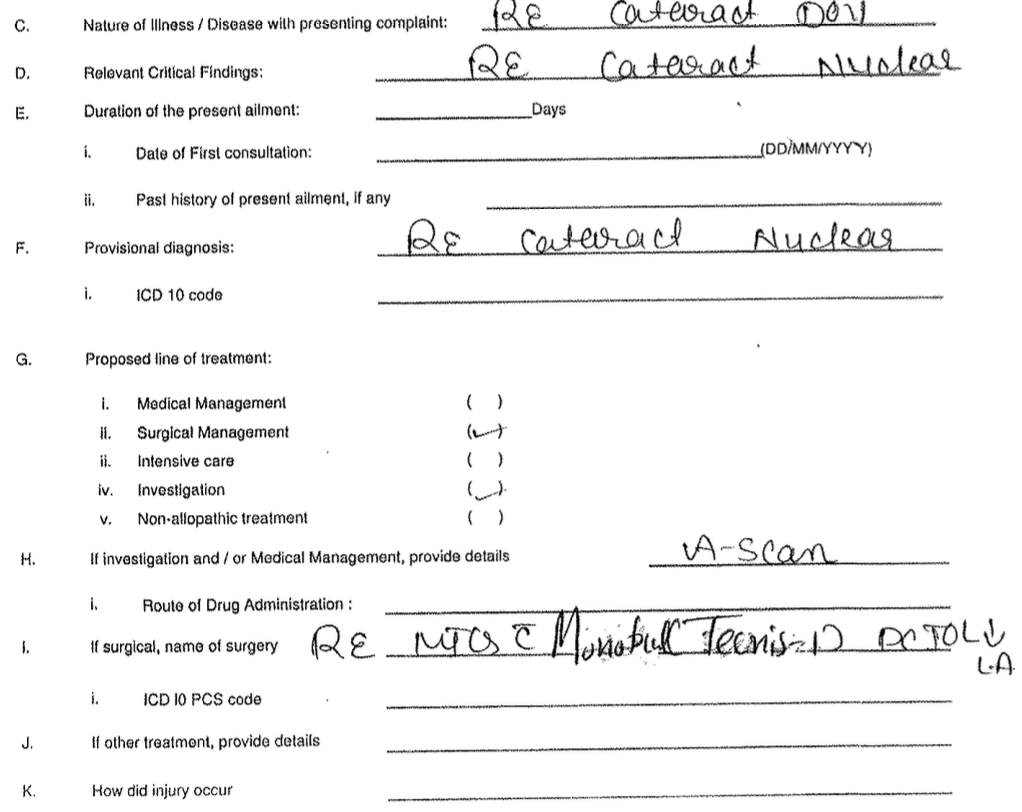 C. Nature of Illness / Disease with presenting complaint: RE Cateract DOV
D. Relevant Critical Findings: RE Cateract Nuclear
E. Duration of the present ailment: ____ Days
i. Date of First consultation: ____ (DD/MM/YYYY)
ii. Past history of present ailment, if any
F. Provisional diagnosis: RE Cateract Nuclear
i. ICD 10 code
G. Proposed line of treatment:
i. Medical Management ( )
ii. Surgical Management (✓)
ii. Intensive care ( )
iv. Investigation (✓)
v. Non-allopathic treatment ( )
H. If investigation and / or Medical Management, provide details A-Scan
i. Route of Drug Administration :
I. If surgical, name of surgery RE Tecnis-1) PCIOL ↓
L.A
i. ICD 10 PCS code
J. If other treatment, provide details
K. How did injury occur